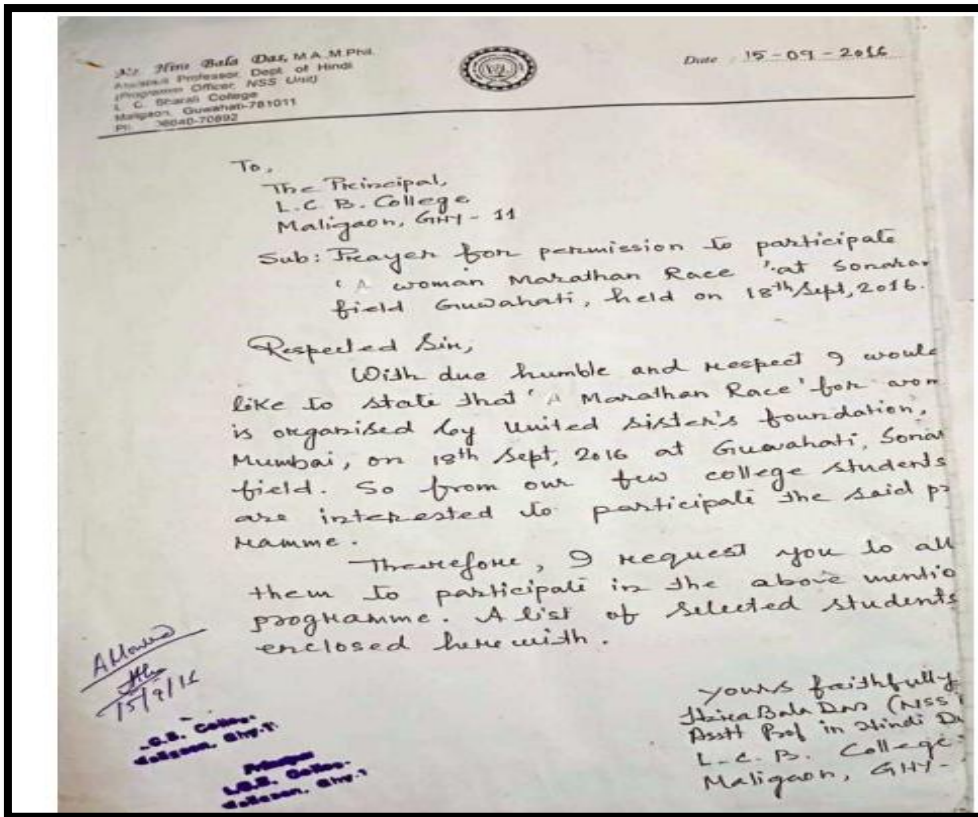 Hira Bala Das, M.A., M.Phil.
Professor, Dept. of Hindi
(Programme Officer, NSS Unit)
L. C. Bharali College
Maligaon, Guwahati-781011
Date : 15-09-2016
To,
The Principal,
L.C.B. College
Maligaon, GHY-11
Sub: Prayer for permission to participate
'A woman Marathan Race' at Sonaram
field Guwahati, held on 18th Sept, 2016.
Respected Sir,
With due humble and respect I would
like to state that 'A Marathan Race' for wom
is organised by United Sister's foundation,
Mumbai, on 18th Sept, 2016 at Guwahati, Sonar
field. So from our few college students
are interested to participate the said pr
ramme.
Therefore, I request you to all
them to participate in the above mentio
programme. A list of selected students
enclosed herewith.
Allowed
15/9/16
L.C.B. College
Maligaon, Ghy-1
Principal
L.C.B. College
Maligaon, Ghy-1
Yours faithfully
Hira Bala Das (NSS
Asstt Prof in Hindi D
L.C.B. College
Maligaon, GHY-